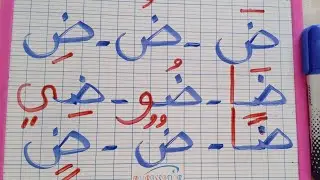 ضَ - ضُ - ضِ
ضَا - ضُو - ضِي
ضًا - ضٌ - ضٍ